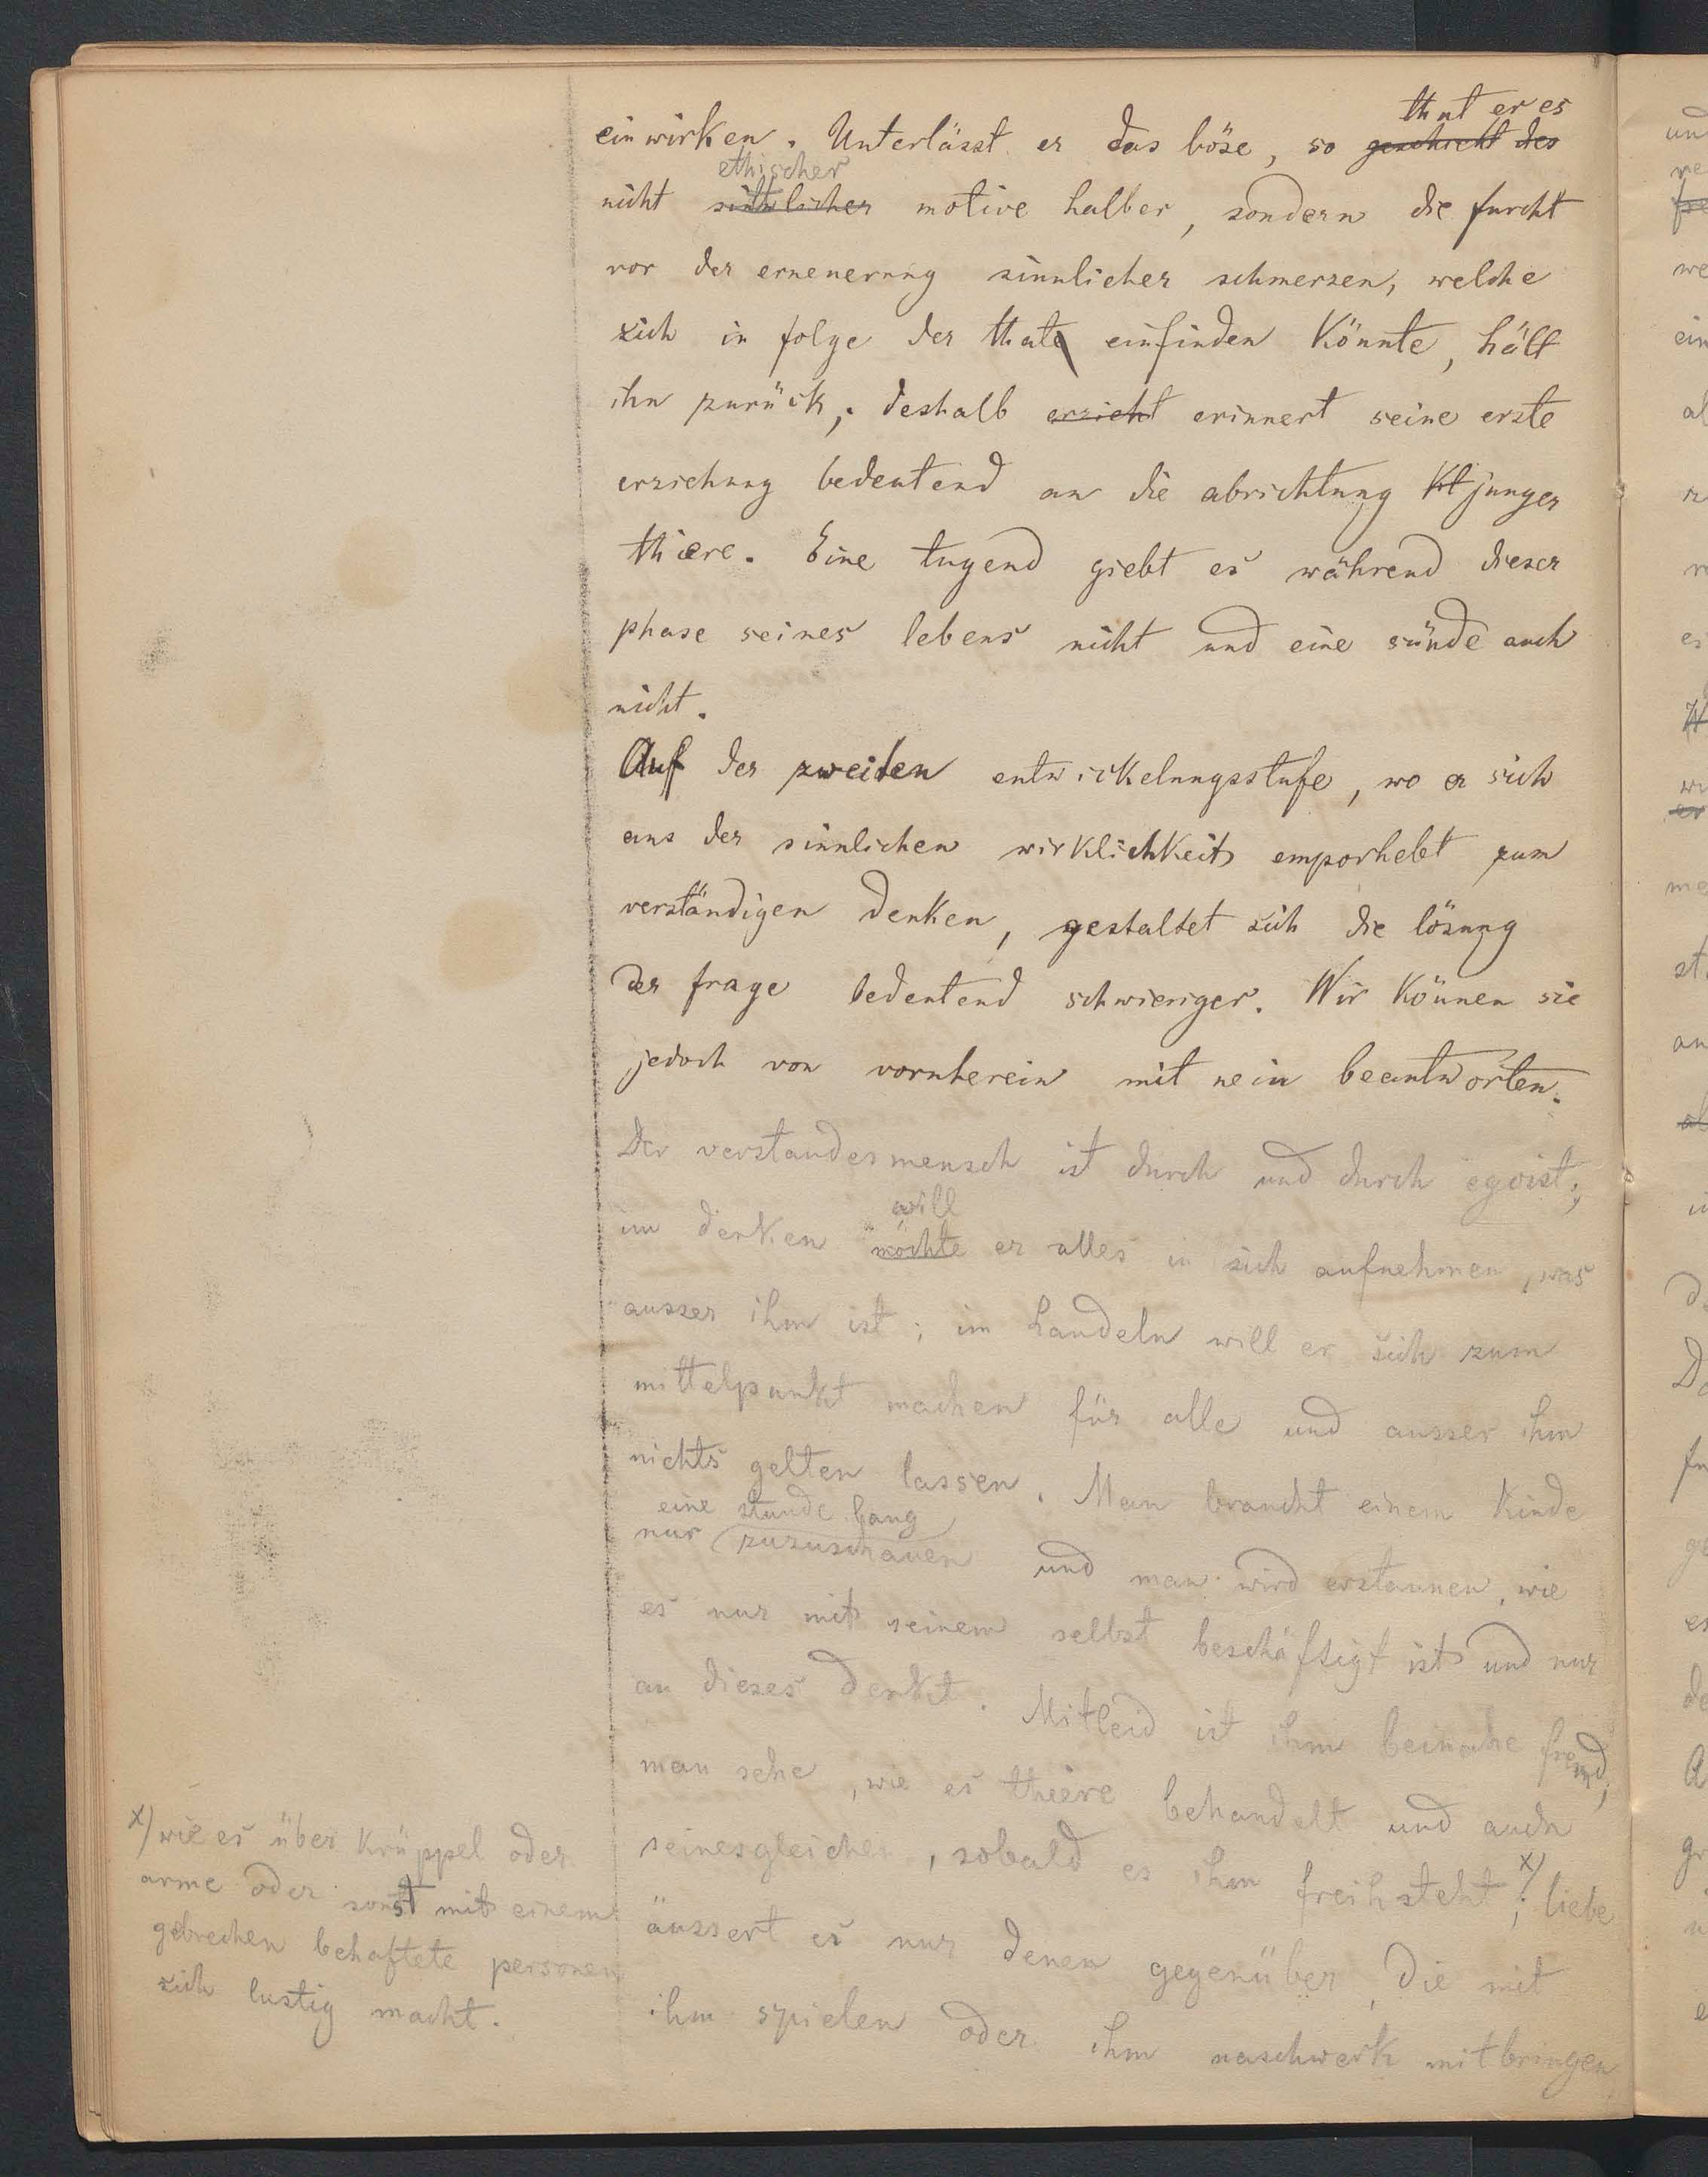 that er es
einwirken. Unterlässt er das böse, so geschieht des
ethischer
nicht sinnlicher motive halber, sondern die furcht
vor der erneuerung sinnlicher schmerzen, welche
sich in folge der thate einfinden könnte, hält
ihn zurück, deshalb erzieht erinnert seine erste
erziehung bedeutend an die abrichtung kt junger
thiere. Eine tugend giebt es während dieser
phase seines lebens nicht und eine sünde auch
nicht.
Auf der zweiten entwickelungsstufe, wo er sich
aus der sinnlichen wirklichkeit emporhebt zum
verständigen denken, gestaltet sich die lösung
der frage bedeutend schwieriger. Wir können sie
jedoch von vornherein mit nein beantworten.
Der verstandesmensch ist durch und durch egoist;
will
im denken möchte er alles in sich aufnehmen, was
ausser ihm ist; im handeln will er sich zum
mittelpunkt machen für alle und ausser ihm
nichts gelten lassen. Man braucht einem kinde
eine stunde lang
nur zuzuschauen und man wird erstaunen, wie
es nur mit seinem selbst beschäftigt ist und nur
an dieses denkt. Mitleid ist ihm beinahe fremd;
man sehe, wie es thiere behandelt und auch
seinesgleichen, sobald es ihm freihsteht x); liebe
äussert es nur denen gegenüber, die mit
ihm spielen oder ihm naschwerk mitbringen
x) wie es über krüppel oder
arme oder sonst mit einem
gebrechen behaftete personen
sich lustig macht.